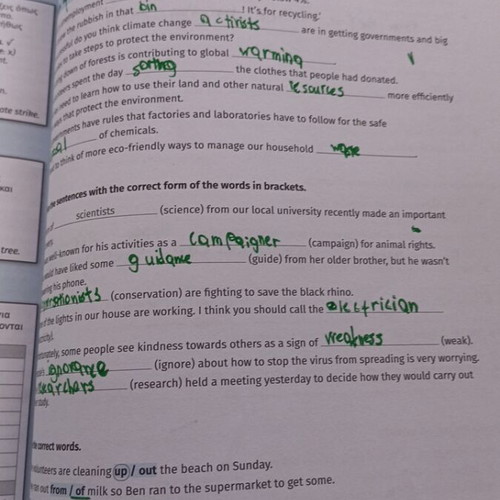 the rubbish in that bin ! It's for recycling.
do you think climate change activists are in getting governments and big
to take steps to protect the environment?
of forests is contributing to global warming
spent the day sorting the clothes that people had donated.
to learn how to use their land and other natural resources more efficiently
that protect the environment.
have rules that factories and laboratories have to follow for the safe
of chemicals.
think of more eco-friendly ways to manage our household
sentences with the correct form of the words in brackets.
scientists (science) from our local university recently made an important
well-known for his activities as a campaigner (campaign) for animal rights.
have liked some guidance (guide) from her older brother, but he wasn't
his phone.
(conservation) are fighting to save the black rhino.
the lights in our house are working. I think you should call the
some people see kindness towards others as a sign of weakness (weak).
(ignore) about how to stop the virus from spreading is very worrying.
(research) held a meeting yesterday to decide how they would carry out
study.
correct words.
are cleaning up / out the beach on Sunday.
out from / of milk so Ben ran to the supermarket to get some.
ate strike.
tree.
και
ονται